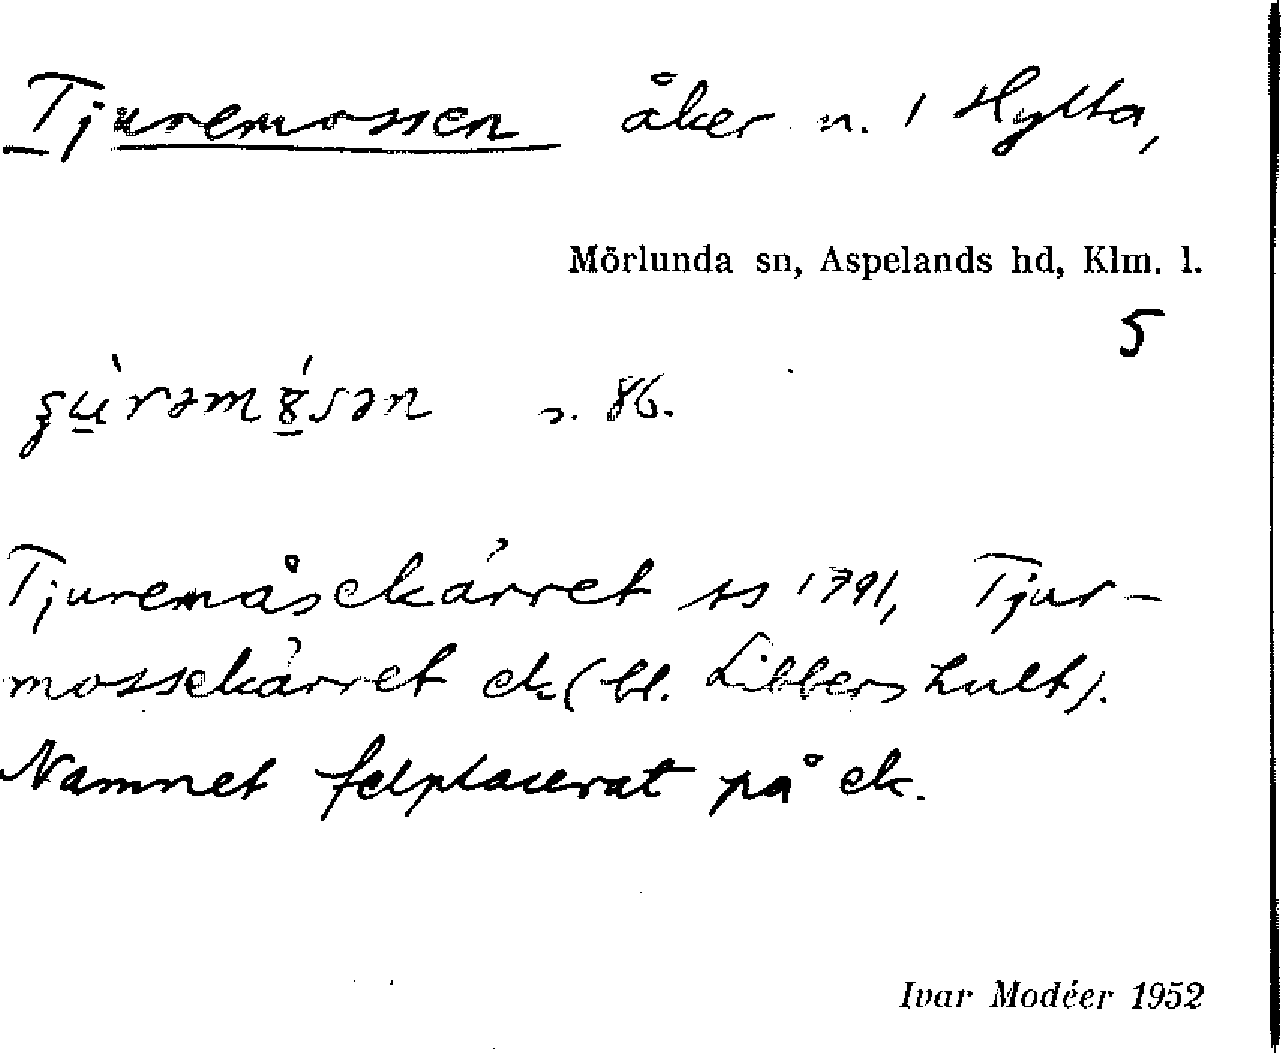 Tjuremossen åker n. 1 Hylta,
Mörlunda sn, Aspelands hd, Klm. l.
5
s. 86.
Tjuremåsekärret ss 1791, Tjur-
mossekärret ek (bl. Libbershult).
Namnet felplacerat på ek.
Ivar Modéer 1952